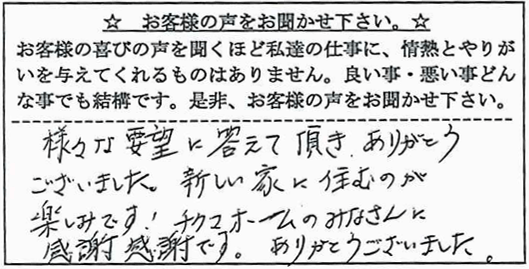 ☆ お客様の声をお聞かせ下さい。☆
お客様の喜びの声を聞くほど私達の仕事に、情熱とやりが
いを与えてくれるものはありません。良い事・悪い事どん
な事でも結構です。是非、お客様の声をお聞かせ下さい。
様々な要望に答えて頂き、ありがとう
ございました。新しい家に住むのが
楽しみです！チクマホームのみなさんに
感謝感謝です。ありがとうございました。